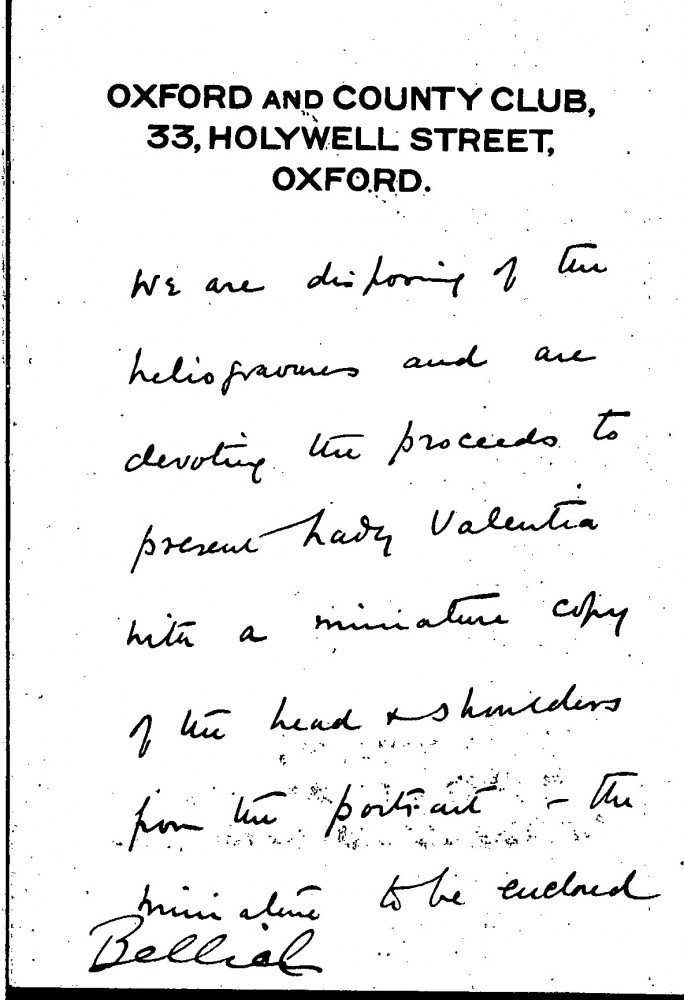 OXFORD AND COUNTY CLUB,
33, HOLYWELL STREET,
OXFORD.
We are disposing of the
heliogravures and are
devoting the proceeds to
present Lady Valentia
with a miniature copy
of the head & shoulders
from the portrait - the
miniature to be enclosed